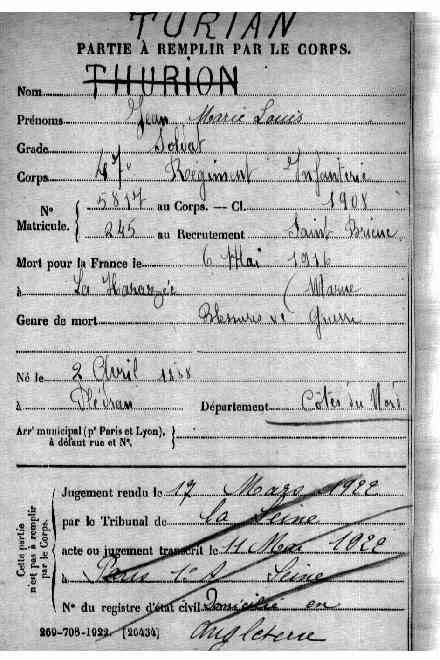 TURIAN
PARTIE À REMPLIR PAR LE CORPS.
Nom THURION
Prénoms Jean Marie Louis
Grade Soldat
Corps 47e Régiment Infanterie
N° Matricule. { 5817 au Corps. — Cl. 1908
245 au Recrutement Saint Brieuc
Mort pour la France le 6 Mai 1916
à La Harazée (Marne
Genre de mort Blessures de Guerre
Né le 2 Avril 1888
à Plédran Département Côtes du Nord
Arrt municipal (pr Paris et Lyon), à défaut rue et N°. }
Cette partie n'est pas à remplir par le Corps.
Jugement rendu le 17 Mars 1922
par le Tribunal de la Seine
acte ou jugement transcrit le 11 Mai 1922
à Paris Seine
N° du registre d'état civil Domicilié en
Angleterre
269-708-1922. [26434]